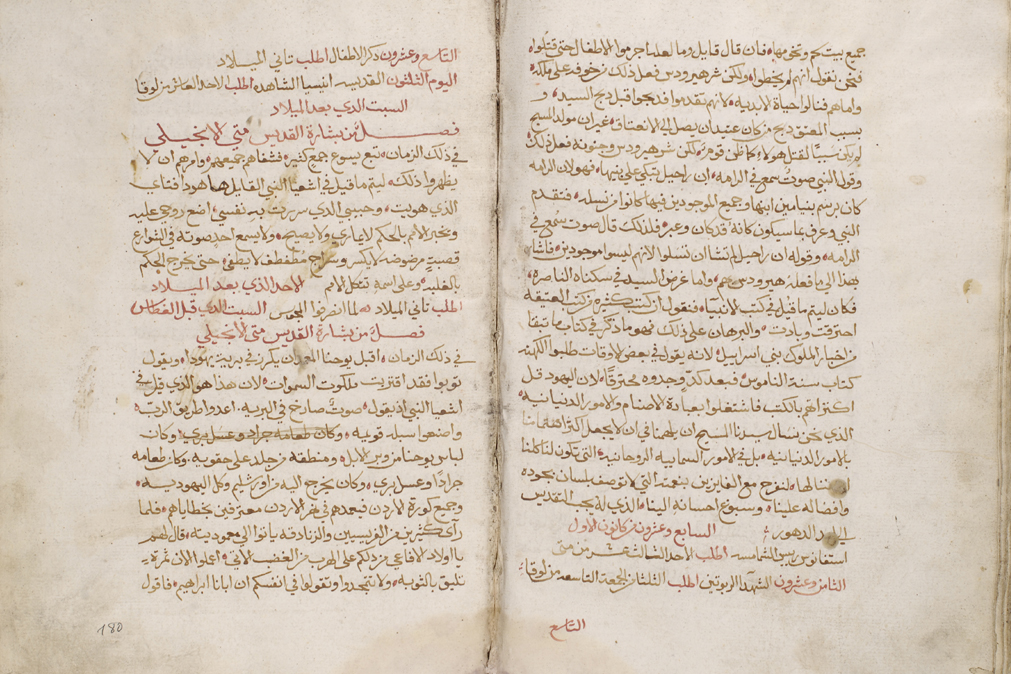 جميع بيت لحم وتخومها فان قال قايل وما لعله اجرموا الاطفال حتى قتلوا
فنحن نقول انهم لم يخطوا ولكن شر هيرودس فعل ذلك من خوفه على ملكه
واما هم فنالوا حياة لابديه لانهم تقدموا فذبحوا قبل ذبح السيد و
بسبب المعتق ذبح من كان عتيدان يصل الى الانعتاق غير ان مولد المسيح
لم يكن سببًا لقتل هولاء كما ظن قوم ولكن شر هيرودس وجنونه فعل ذلك
وقول النبي صوت سمع في الرامه ان راحيل تبكي على بنيها فهو لان الرامه
كان برسم بنيامين ابنها وجميع الموجودين فيها كانوا من نسله فتقدم
النبي وعرف بما سيكون كانه قد كان وعبر فلذلك قال صوت سمع في
الرامه وقوله ان راحيل لم تشا ان تتسلوا لانهم ليسوا موجودين فاشار
بهذا الى ما فعله هيرودس بهم واما غرض السيد في سكناه الناصره
فكان ليتم ما قيل في كتب الانبيا فنقول ان كتب كثيره من كتب العتيقه
احترقت وبادت والبرهان على ذلك فهو ما ذكر في كتاب ما تبقا
من اخبار الملوك بني اسراييل لانه يقول في بعض الاوقات طلبوا الكهنه
كتاب سنة الناموس فبعد كد وجدوه محترقًا لان اليهود قل
اكتراثهم بالكتب فاشتغلوا بعبادة الاصنام والامور الدنيانيه
الذي نحن نسال سيدنا المسيح ان يلهمنا في ان لا يجعل اكثر اهتمامنا
بالامور الدنيانيه بل في الامور السمايه الروحانيه التي تكون لنا كلنا
لنفرح مع الفايزين بنعمته التي لا توصف بلسان بجوده
وافضاله علينا وسبوغ احسانه الينا الذي له يجب التقديس
الى ابد الدهور السابع وعشرون من كانون الاول
استفانوس ريس الشمامسه اطلب الاحد الثالث عشر من متى
الثامن وعشرون الشهدا الربوتين اطلب الثلثا من الجمعه التاسعه من لوقا
التاسع
التاسع وعشرون ذكر الاطفال اطلب تاني الميلاد
اليوم الثلثون القديسه انيسيا الشاهده اطلب الاحد العاشر من لوقا
السبت الذي بعد الميلاد
فصل من بشارة القديس متى الانجيلي
في ذلك الزمان تبع يسوع جمع كثير فشفاهم جميعهم وامرهم ان لا
يظهروا ذلك ليتم ما قيل في اشعيا النبي القايل ها هوذا فتاي
الذي هويت وحبيبي الذي سررت به نفسي اضع روحي عليه
ويخبر الامم بالحكم لا يماري ولا يصيح ولا يسمع احد صوته في الشوارع
قصبة مرضوضه لا يكسر وسراج مطفطف لا يطفي حتى يخرج الحكم
بالغلبه وعلى اسمه تتكل الامم الاحد الذي بعد الميلاد
اطلب تاني الميلاد لما انصرفوا المجوس السبت الذي قبل الغطاس
فصل من بشارة القديس متى الانجيلي
في ذلك الزمان اقبل يوحنا المعمدان يكرز في برية يهودا ويقول
توبوا فقد اقتربت ملكوت السموات لان هذا هو الذي قيل في
اشعيا النبي اذ يقول صوت صارخ في البريه اعدوا طريق الرب
واصنعوا سبله قويمه وكان طعامه جراد وعسل بري وكان
لباس يوحنا من وبر الابل ومنطقة من جلد على حقويه وكان طعامه
جرادًا وعسل بري وكان يخرج اليه من اورشليم وكل اليهوديه
وجميع كورة الاردن فيعمدهم في نهر الاردن معترفين بخطاياهم فلما
رأى كثيرين من الفريسيين والزنادقه ياتوا الى معموديته قال لهم
يا اولاد الافاعي من دلكم على الهرب من الغضب الاتي اعملوا الان ثمرة
تليق بالتوبه ولا تتمجدوا وتقولوا في انفسكم ان ابانا ابراهيم فاقول
180